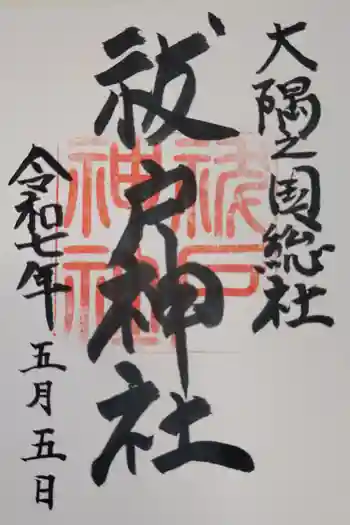 大隅之国総社
祓戸神社
令和七年
五月五日
祓戸
神社